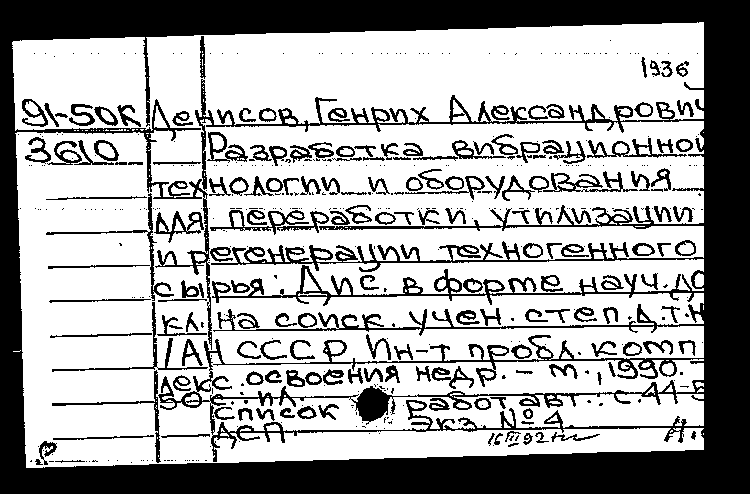 1936
91-50К Денисов, Генрих Александрович
3610 Разработка вибрационной
технологии и оборудования
для переработки, утилизации
и регенерации техногенного
сырья: Дис. в форме науч. до
кл. на соиск. учен. степ. д.т.н
/АН СССР, Ин-т пробл. комп
лекс. освоения недр. – М., 1990. –
50 с.: ил.
Список работ авт.: с. 44-5
Деп. Экз. № 4.
16 III 92